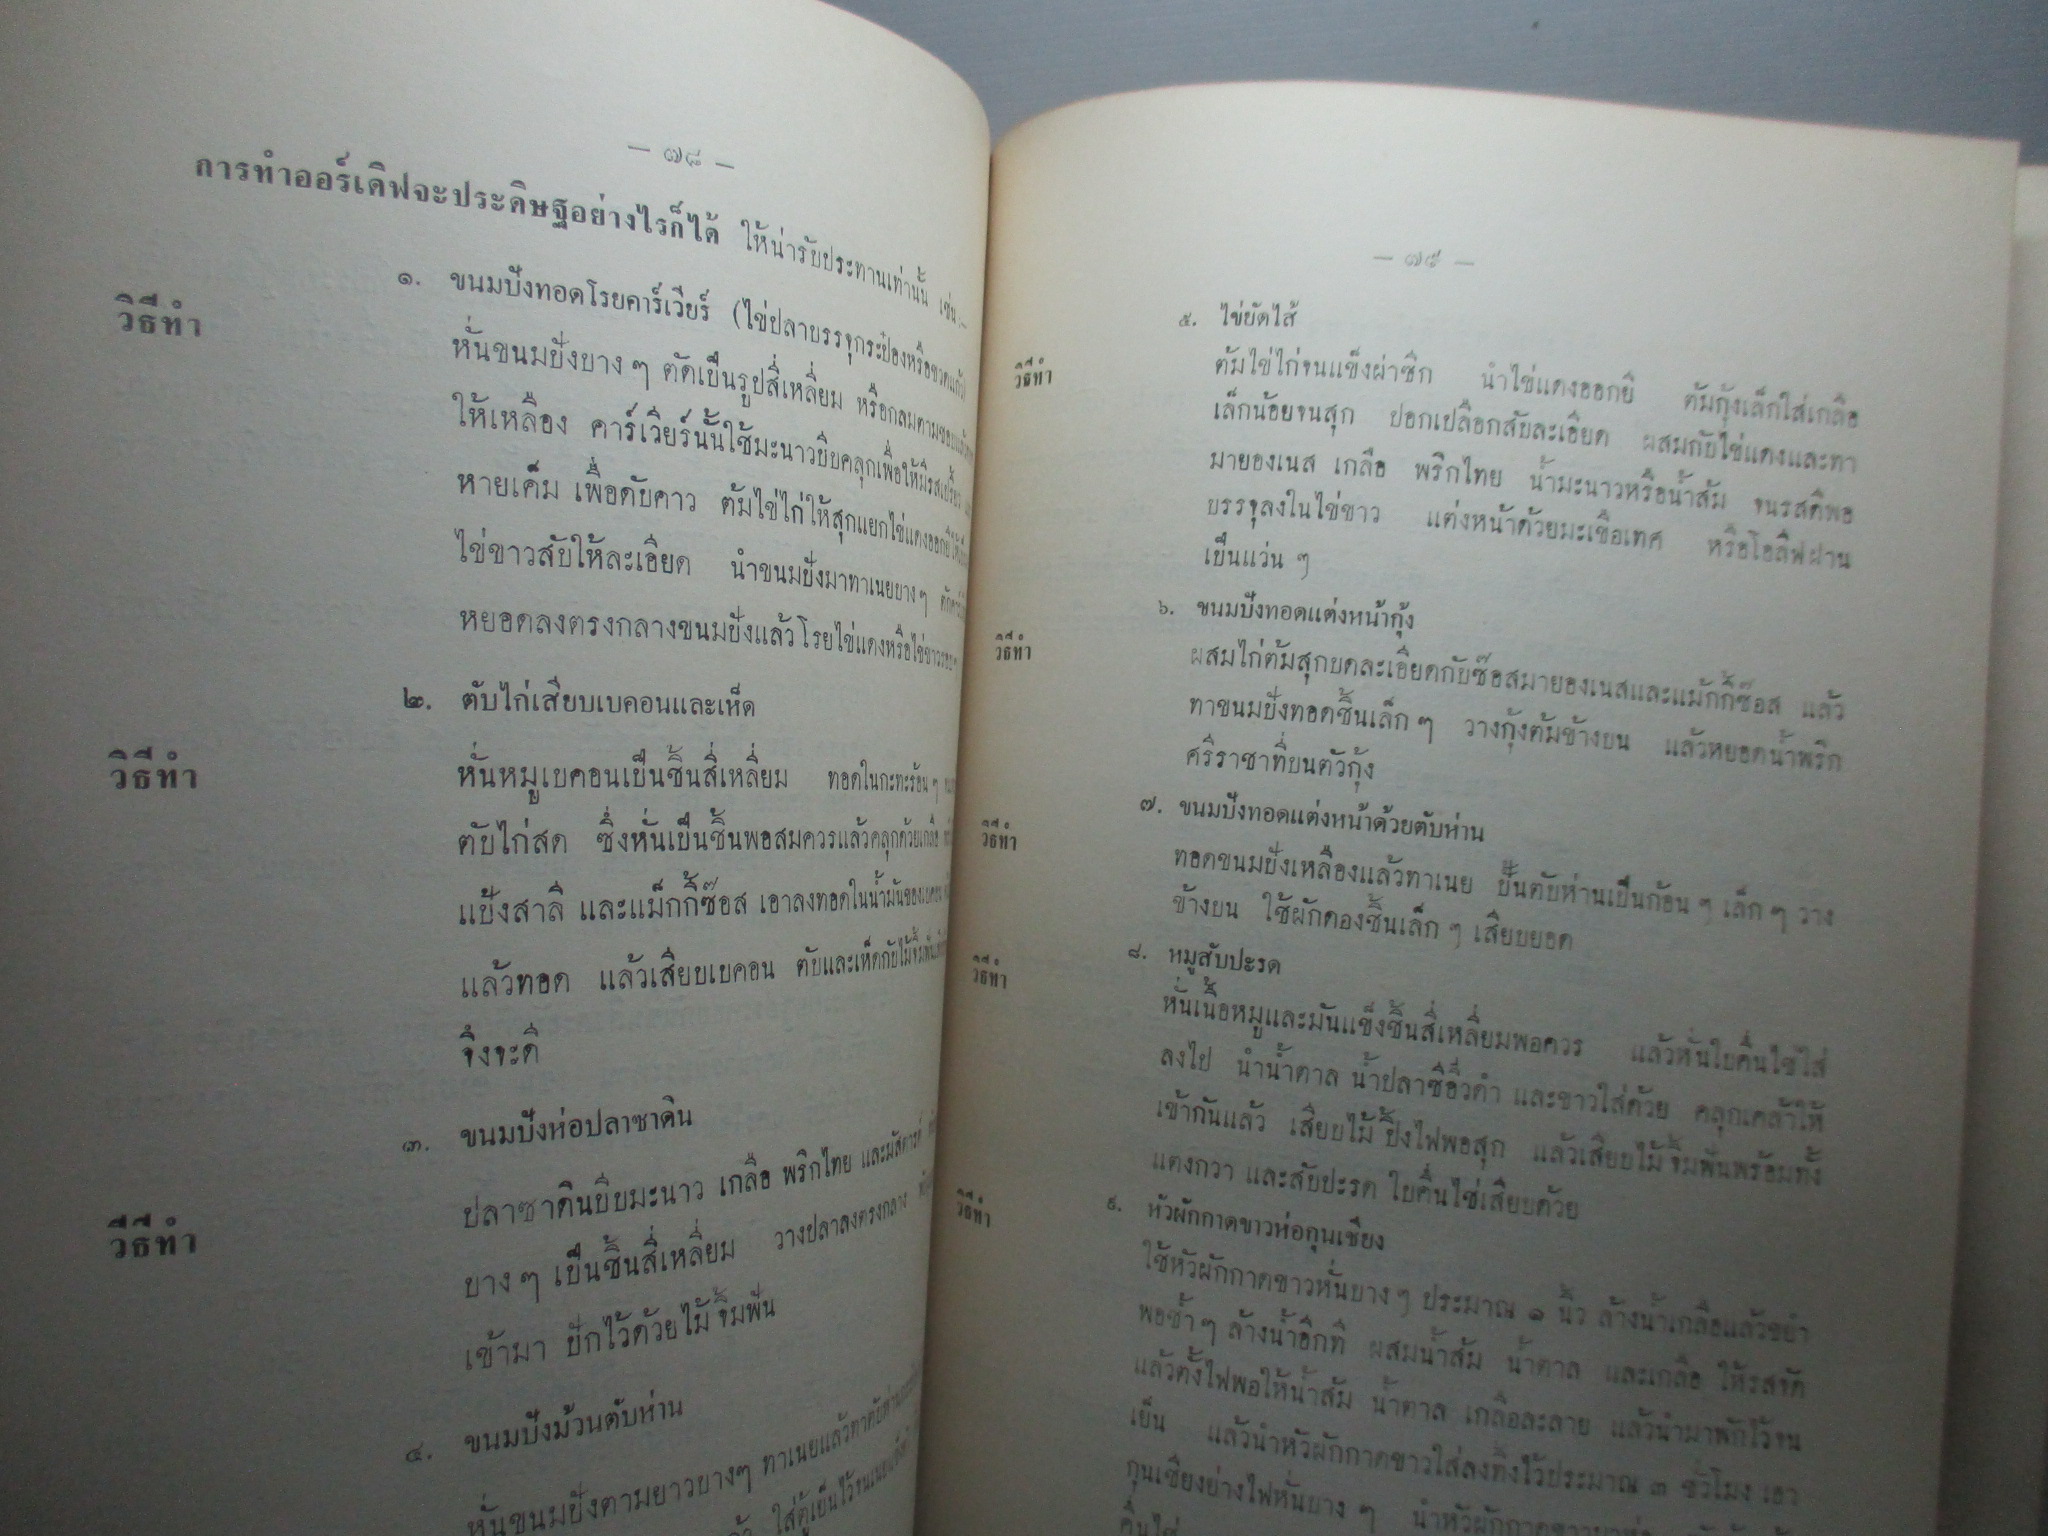 — ๗๘ —
การทำออร์เดิฟจะประดิษฐอย่างไรก็ได้ ให้น่ารับประทานเท่านั้น เช่น :—
๑. ขนมปังทอดโรยคาร์เวียร์ (ไข่ปลาบรรจุกระป๋องหรือขวดแก้ว)
วิธีทำ
หั่นขนมปังบาง ๆ ตัดเป็นรูปสี่เหลี่ยม หรือกลมตามชอบแล้ว
ให้เหลือง คาร์เวียร์นั้นใช้มะนาวบีบคลุกเพื่อให้มีรสเปรี้ยว
หายเค็ม เพื่อดับคาว ต้มไข่ไก่ให้สุกแยกไข่แดงออกยีให้
ไข่ขาวสับให้ละเอียด นำขนมปังมาทาเนยบาง ๆ
หยอดลงตรงกลางขนมปังแล้วโรยไข่แดงหรือไข่ขาวรอบ ๆ
๒. ตับไก่เสียบเบคอนและเห็ด
วิธีทำ
หั่นหมูเบคอนเป็นชิ้นสี่เหลี่ยม ทอดในกะทะร้อน ๆ
ตับไก่สด ซึ่งหั่นเป็นชิ้นพอสมควรแล้วคลุกด้วยเกลือ
แป้งสาลี และแม็กกี้ซ๊อส เอาลงทอดในน้ำมันของเบคอน
แล้วทอด แล้วเสียบเบคอน ตับและเห็ดกับไม้จิ้มฟัน
จึงจะดี
๓. ขนมปังห่อปลาซาดิน
วิธีทำ
ปลาซาดินบีบมะนาว เกลือ พริกไทย และมัสตาร์ด
บาง ๆ เป็นชิ้นสี่เหลี่ยม วางปลาลงตรงกลาง
เข้ามา ปักไว้ด้วยไม้จิ้มฟัน
๔. ขนมปังม้วนตับห่าน
หั่นขนมปังตามยาวบางๆ ทาเนยแล้วทาตับห่าน
ใส่ตู้เย็นไว้จนเนยแข็ง
— ๗๙ —
๕. ไข่ยัดไส้
วิธีทำ
ต้มไข่ไก่จนแข็งผ่าซีก นำไข่แดงออกยี ต้มกุ้งเล็กใส่เกลือ
เล็กน้อยจนสุก ปอกเปลือกสับละเอียด ผสมกับไข่แดงและทา
มายองเนส เกลือ พริกไทย น้ำมะนาวหรือน้ำส้ม จนรสดีพอ
บรรจุลงในไข่ขาว แต่งหน้าด้วยมะเขือเทศ หรือโอลีฟฝาน
เป็นแว่น ๆ
๖. ขนมปังทอดแต่งหน้ากุ้ง
วิธีทำ
ผสมไก่ต้มสุกบดละเอียดกับซ๊อสมายองเนสและแม้กกี้ซ๊อส แล้ว
ทาขนมปังทอดชิ้นเล็ก ๆ วางกุ้งต้มข้างบน แล้วหยอดน้ำพริก
ศรีราชาที่บนตัวกุ้ง
๗. ขนมปังทอดแต่งหน้าด้วยตับห่าน
วิธีทำ
ทอดขนมปังเหลืองแล้วทาเนย ปั้นตับห่านเป็นก้อน ๆ เล็ก ๆ วาง
ข้างบน ใช้ผักดองชิ้นเล็ก ๆ เสียบยอด
๘. หมูสับปะรด
วิธีทำ
หั่นเนื้อหมูและมันแข็งชิ้นสี่เหลี่ยมพอควร แล้วหั่นใบคื่นไช่ใส่
ลงไป นำน้ำตาล น้ำปลาซีอิ๊วดำ และขาวใส่ด้วย คลุกเคล้าให้
เข้ากันแล้ว เสียบไม้ ปิ้งไฟพอสุก แล้วเสียบไม้จิ้มฟันพร้อมทั้ง
แตงกวา และสับปะรด ใบคื่นไช่เสียบด้วย
๙. หัวผักกาดขาวห่อกุนเชียง
วิธีทำ
ใช้หัวผักกาดขาวหั่นบาง ๆ ประมาณ ๑ นิ้ว ล้างน้ำเกลือแล้วขยำ
พอช้ำ ๆ ล้างน้ำอีกที ผสมน้ำส้ม น้ำตาล และเกลือ ให้รสจัด
แล้วตั้งไฟพอให้น้ำส้ม น้ำตาล เกลือละลาย แล้วนำมาพักไว้จน
เย็น แล้วนำหัวผักกาดขาวใส่ลงทิ้งไว้ประมาณ ๓ ชั่วโมง เอา
กุนเชียงย่างไฟหั่นบาง ๆ นำหัวผักกาดขาวมาห่อ
คื่นไช่